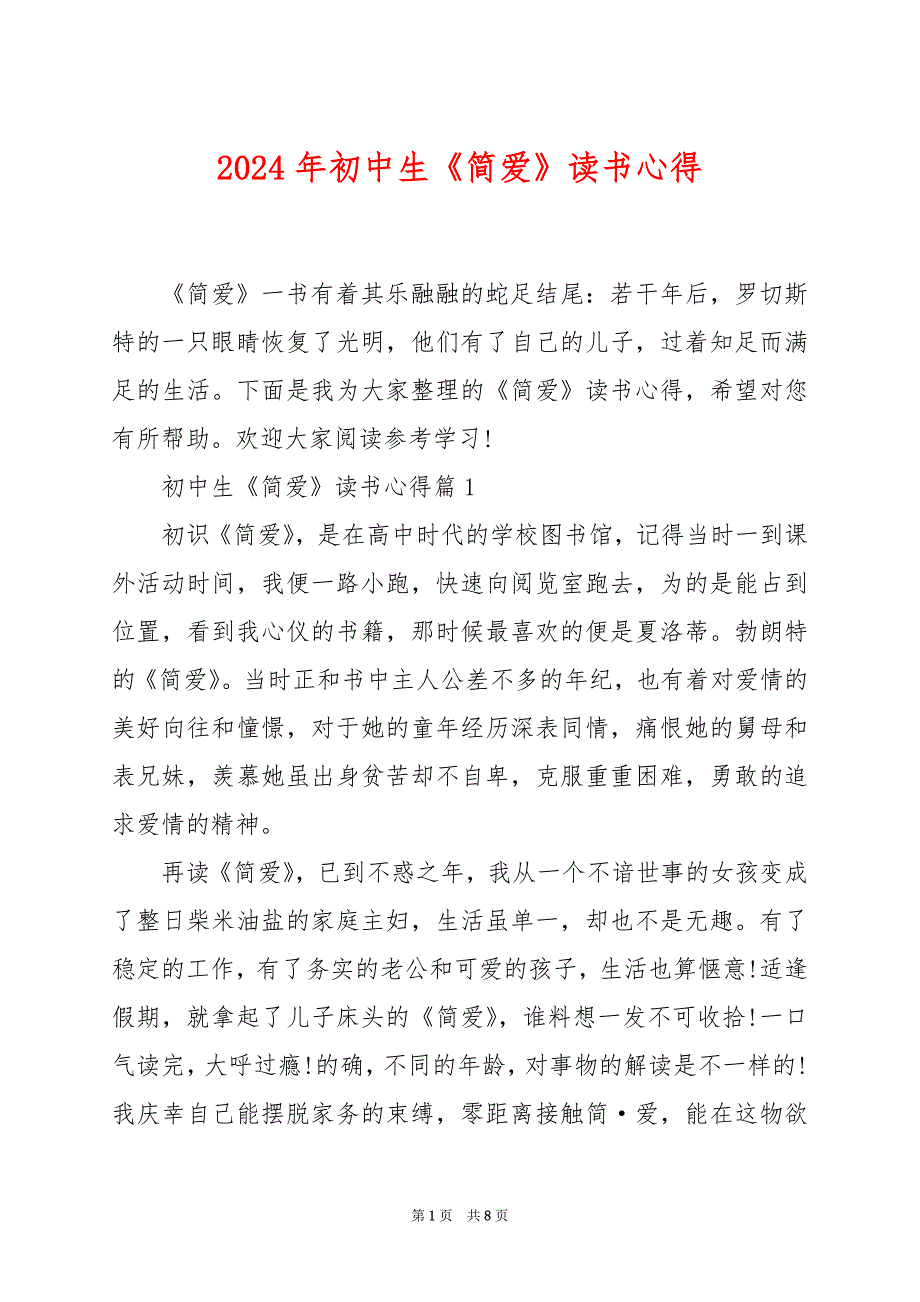 2024 年初中生《简爱》读书心得
《简爱》一书有着其乐融融的蛇足结尾：若干年后，罗切斯
特的一只眼睛恢复了光明，他们有了自己的儿子，过着知足而满
足的生活。下面是我为大家整理的《简爱》读书心得，希望对您
有所帮助。欢迎大家阅读参考学习!
初中生《简爱》读书心得篇 1
初识《简爱》，是在高中时代的学校图书馆，记得当时一到课
外活动时间，我便一路小跑，快速向阅览室跑去，为的是能占到
位置，看到我心仪的书籍，那时候最喜欢的便是夏洛蒂。勃朗特
的《简爱》。当时正和书中主人公差不多的年纪，也有着对爱情的
美好向往和憧憬，对于她的童年经历深表同情，痛恨她的舅母和
表兄妹，羡慕她虽出身贫苦却不自卑，克服重重困难，勇敢的追
求爱情的精神。
再读《简爱》，已到不惑之年，我从一个不谙世事的女孩变成
了整日柴米油盐的家庭主妇，生活虽单一，却也不是无趣。有了
稳定的工作，有了务实的老公和可爱的孩子，生活也算惬意!适逢
假期，就拿起了儿子床头的《简爱》，谁料想一发不可收拾!一口
气读完，大呼过瘾!的确，不同的年龄，对事物的解读是不一样的!
我庆幸自己能摆脱家务的束缚，零距离接触简·爱，能在这物欲
第 1 页 共 8 页